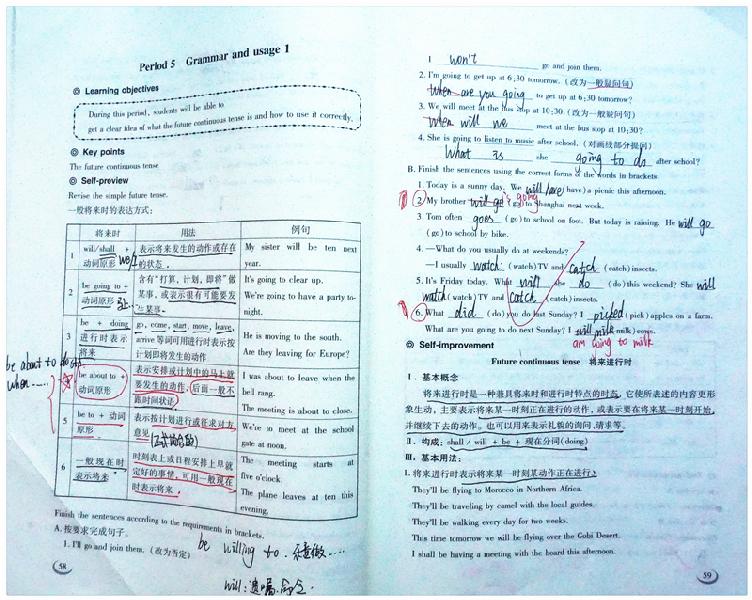 Period 5 Grammar and usage 1
Learning objectives
During this period, students will be able to
get a clear idea of what the future continuous tense is and how to use it correctly.
Key points
The future continuous tense
Self-preview
Revise the simple future tense.
一般将来时的表达方式:
将来时 用法 例句
1 will/shall + 动词原形 we/I 表示将来发生的动作或存在的状态. My sister will be ten next year.
2 be going to + 动词原形 含有"打算,计划,即将"做某事,或表示很有可能要发生某事. It's going to clear up.
We're going to have a party to-night.
3 be + doing 进行时表示将来 go, come, start, move, leave, arrive等词可用进行时表示按计划即将发生的动作 He is moving to the south.
Are they leaving for Europe?
be about to do sth
when ....
be about to + 动词原形 表示安排或计划中的马上就要发生的动作,后面一般不跟时间状语 I was about to leave when the bell rang.
The meeting is about to close.
5 be to + 动词原形 表示按计划进行或征求对方意见 We're to meet at the school gate at noon.
6 一般现在时表示将来 时刻表上或日程安排上早就定好的事情,可用一般现在时表示将来. The meeting starts at five o'clock.
The plane leaves at ten this evening.
Finish the sentences according to the requirements in brackets.
A. 按要求完成句子.
1. I'll go and join them. (改为否定)
be willing to . 乐意做....
will: 遗嘱. 命令.
58
I won't go and join them.
2. I'm going to get up at 6:30 tomorrow. (改为一般疑问句)
When are you going to get up at 6:30 tomorrow?
3. We will meet at the bus stop at 10:30 (改为一般疑问句)
When will we meet at the bus stop at 10:30?
4. She is going to listen to music after school. (对画线部分提问)
What is she going to do after school?
B. Finish the sentences using the correct forms of the words in brackets
1. Today is a sunny day. We will have (have) a picnic this afternoon.
2 My brother will go is going (go) to Shanghai next week.
3. Tom often goes (go) to school on foot. But today is raining. He will go
(go) to school by bike.
4. —What do you usually do at weekends?
—I usually watch (watch) TV and catch (catch) insects.
5. It's Friday today. What will she do (do) this weekend? She will
watch (watch) TV and catch (catch) insects.
6. What did (do) you do last Sunday? I picked (pick) apples on a farm.
What are you going to do next Sunday? I will milk (milk) cows.
am going to milk
Self-improvement
Future continuous tense 将来进行时
Ⅰ. 基本概念
将来进行时是一种兼具将来时和进行时特点的时态,它使所表述的内容更形
象生动,主要表示将来某一时刻正在进行的动作,或表示要在将来某一时刻开始,
并继续下去的动作。也可以用来表示礼貌的询问、请求等。
Ⅱ. 构成: shall / will + be + 现在分词(doing)
Ⅲ. 基本用法:
1. 将来进行时表示将来某一时刻某动作正在进行?
They'll be flying to Morocco in Northern Africa.
They'll be traveling by camel with the local guides.
They'll be walking every day for two weeks.
This time tomorrow we will be flying over the Gobi Desert.
I shall be having a meeting with the board this afternoon.
59